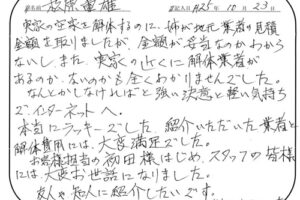 お名前 萩原重雄 記入日 H25年 10月 23日
実家の空家を解体するのに、姉が地元業者の見積
金額を取りましたが、金額が妥当なのかわから
ないし、また、実家の近くに解体業者が
あるのか、ないのかも全くわかりませんでした。
なんとかしなければと強い決意と軽い気持ち
で、インターネットへ。
本当にラッキーでした。紹介いただいた業者と
解体費用には、大変満足でした。
お客様担当の初田様はじめ、スタッフの皆様
には、大変お世話になりました。
友人や知人に紹介したいです。